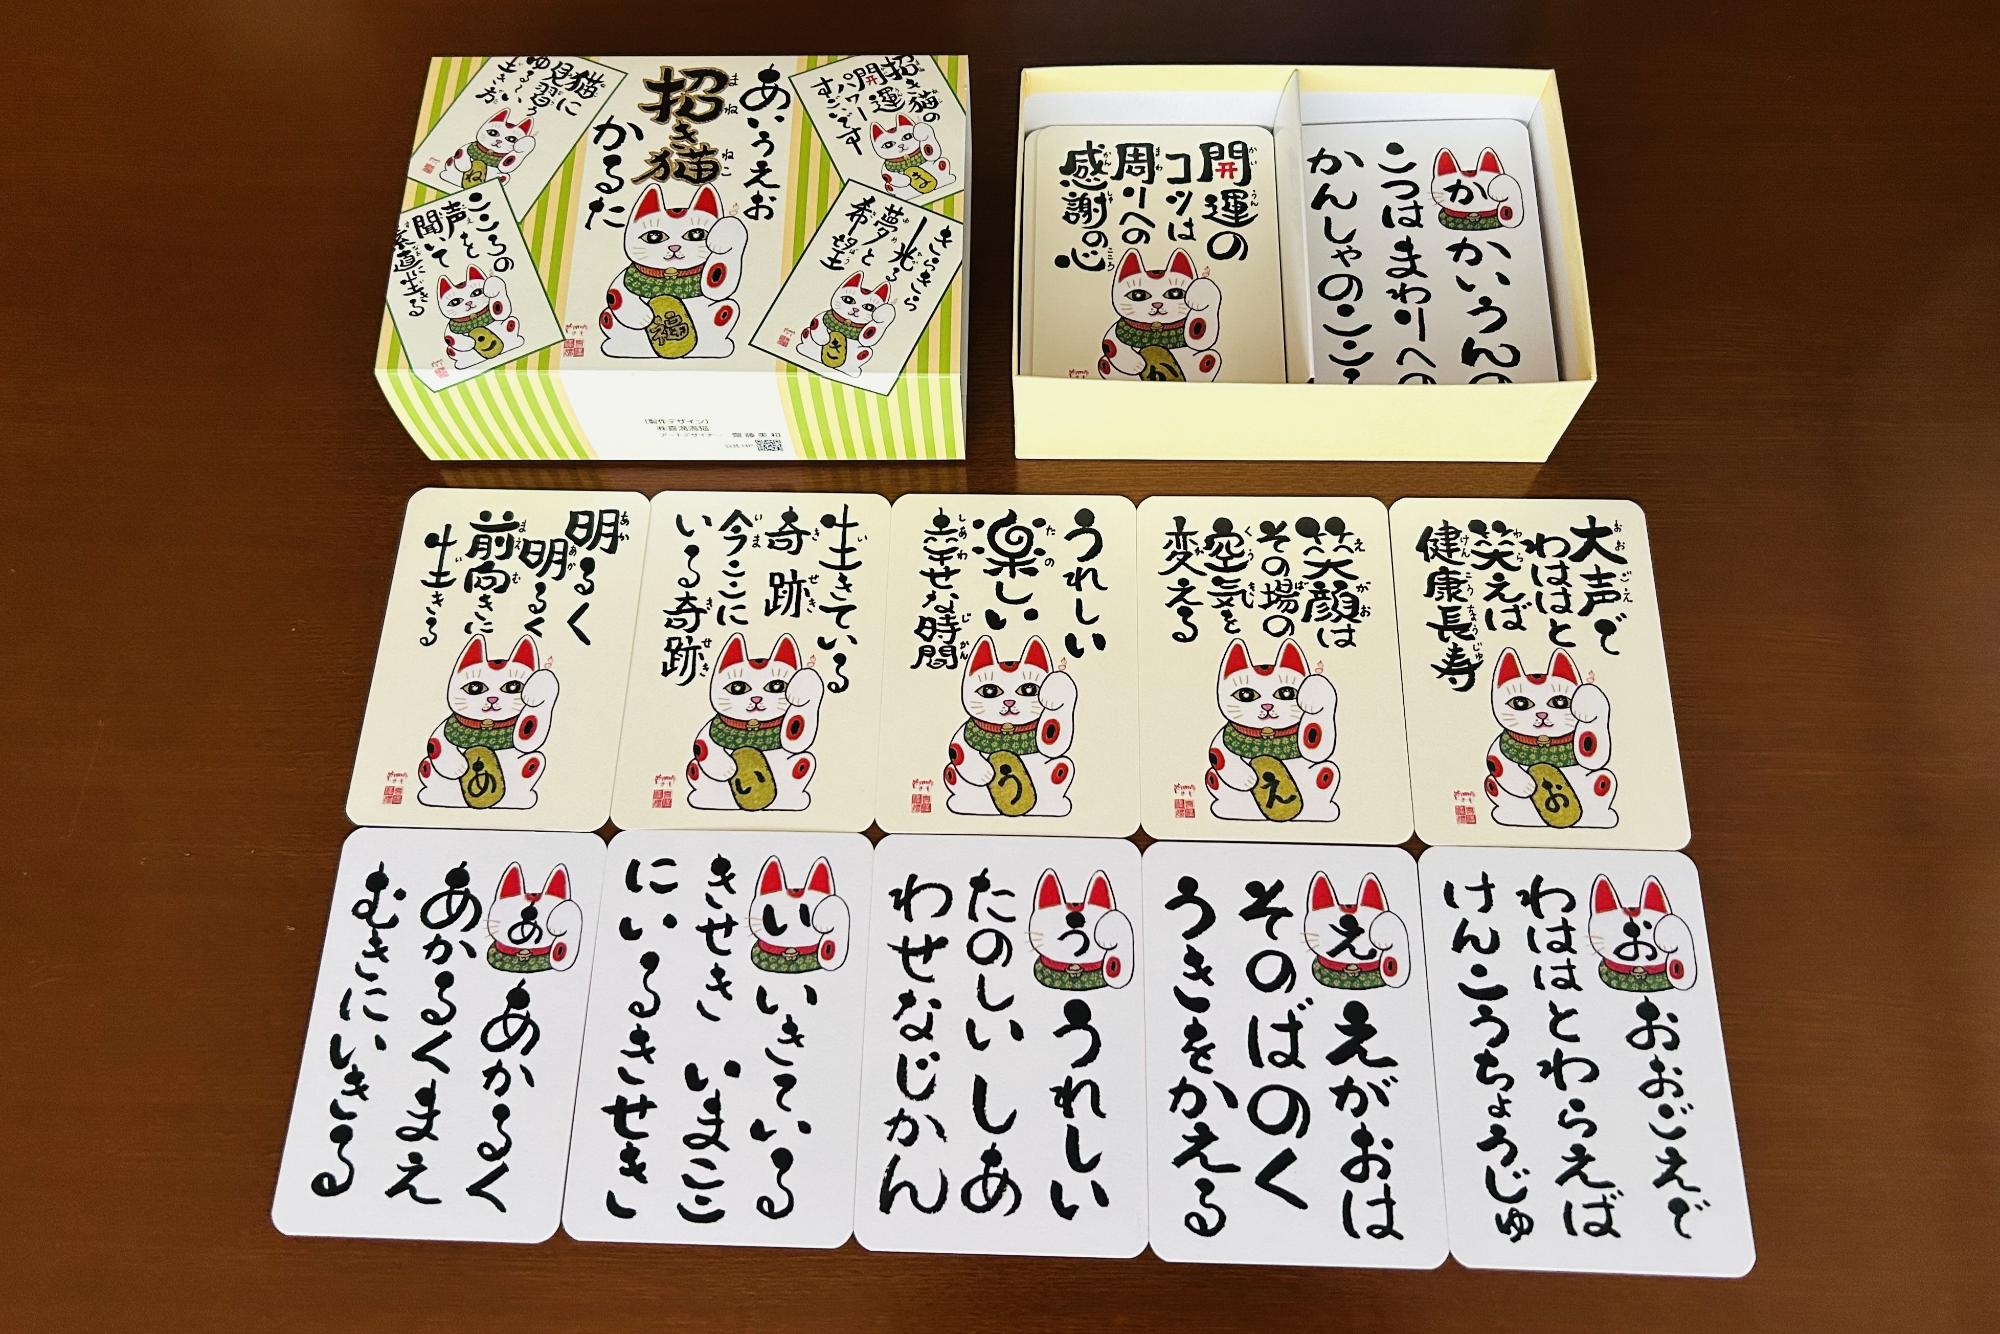 あいうえお
招き猫
まねねこ
かるた
猫に
見習う
ゆる〜い
生き方
ね
招き猫の
開運
パワー
すごいです
ま
こころの
声を
聞いて
素直に生きる
こ
きらきら
光る
夢と
希望
き
福
(製作デザイン)
アートデザイナー 齋藤美和
公式HP
開運の
コツは
周りへの
感謝の心
か
か
かいうんの
こつは まわりへの
かんしゃのここ
明るく
明るく
前向きに
生きる
あ
生きている
奇跡
今ここに
いる奇跡
い
うれしい
楽しい
幸せな時間
う
笑顔は
その場の
空気を
変える
え
大声で
わははと
笑えば
健康長寿
お
あ
あかるく
あかるくまえ
むきにいきる
い
いきている
きせき いまここ
にいるきせき
う
うれしい
たのしい しあ
わせなじかん
え
えがおは
そのばのく
うきをかえる
お
おおごえで
わははとわらえば
けんこうちょうじゅ